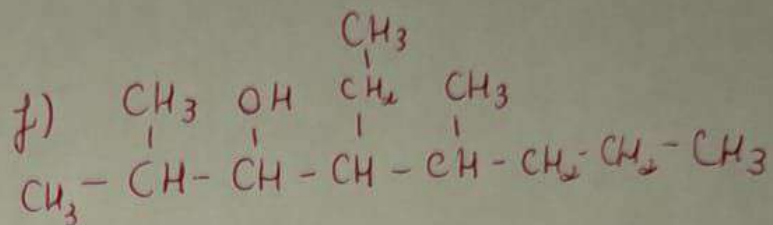 CH3
f) CH3 OH CH2 CH3
CH3 - CH - CH - CH - CH - CH2 - CH2 - CH3